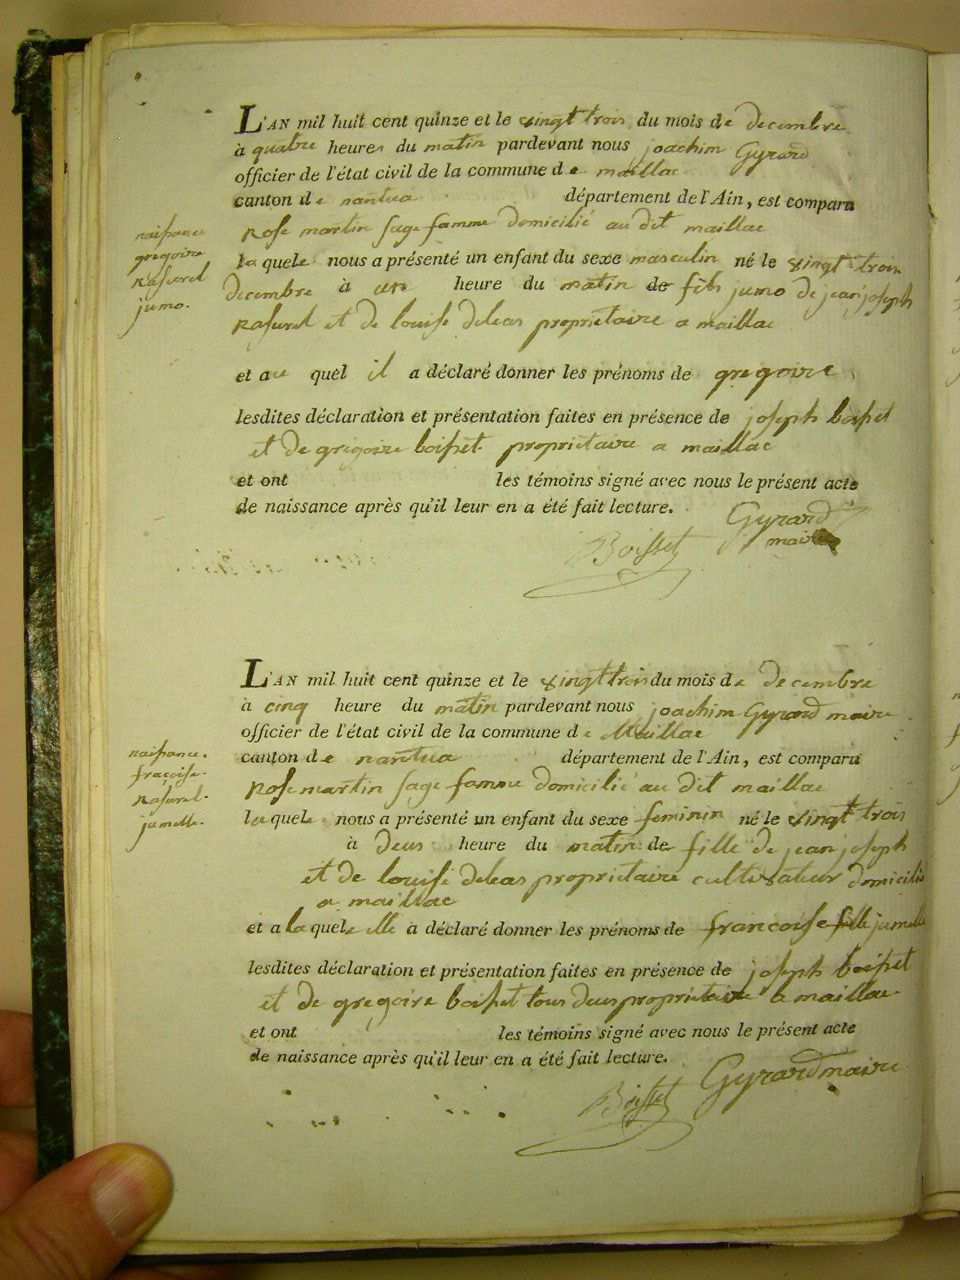 L'AN mil huit cent quinze et le vingt trois du mois de decembre
à quatre heures du matin pardevant nous joachim Gyrard
officier de l'état civil de la commune de maillac
canton de nantua département de l'Ain, est comparu
Rose martin sage famme domicilié au dit maillac
naissance
gregoire
Rasurel
jumo.
la quele nous a présenté un enfant du sexe masculin né le vingt trois
decembre à un heure du matin de fils jumo de jean joseph
Rasurel et de louise deleas proprietaire a maillac
et au quel il a déclaré donner les prénoms de gregoire
lesdites déclaration et présentation faites en présence de joseph boisset
et de gregoire boisset proprietaire a maillac
et ont les témoins signé avec nous le présent acte
de naissance après qu'il leur en a été fait lecture.
Boisset Gyrard
maire
L'AN mil huit cent quinze et le vingt trois du mois de decembre
à cinq heure du matin pardevant nous joachim Gyrard maire
officier de l'état civil de la commune de Maillac
canton de nantua département de l'Ain, est comparu
Rose martin sage famme domicilié au dit maillac
naissance.
françoise
Rasurel.
jumelle.
la quele nous a présenté un enfant du sexe feminin né le vingt trois
à deus heure du matin de fille de jean joseph
et de louise deleas proprietaire cultivateur domicilié
a maillac
et a la quele elle a déclaré donner les prénoms de francoise fille jumelle
lesdites déclaration et présentation faites en présence de joseph boisset
et de gregoire boisset tous deus proprietaire a maillac
et ont les témoins signé avec nous le présent acte
de naissance après qu'il leur en a été fait lecture.
Boisset Gyrard maire